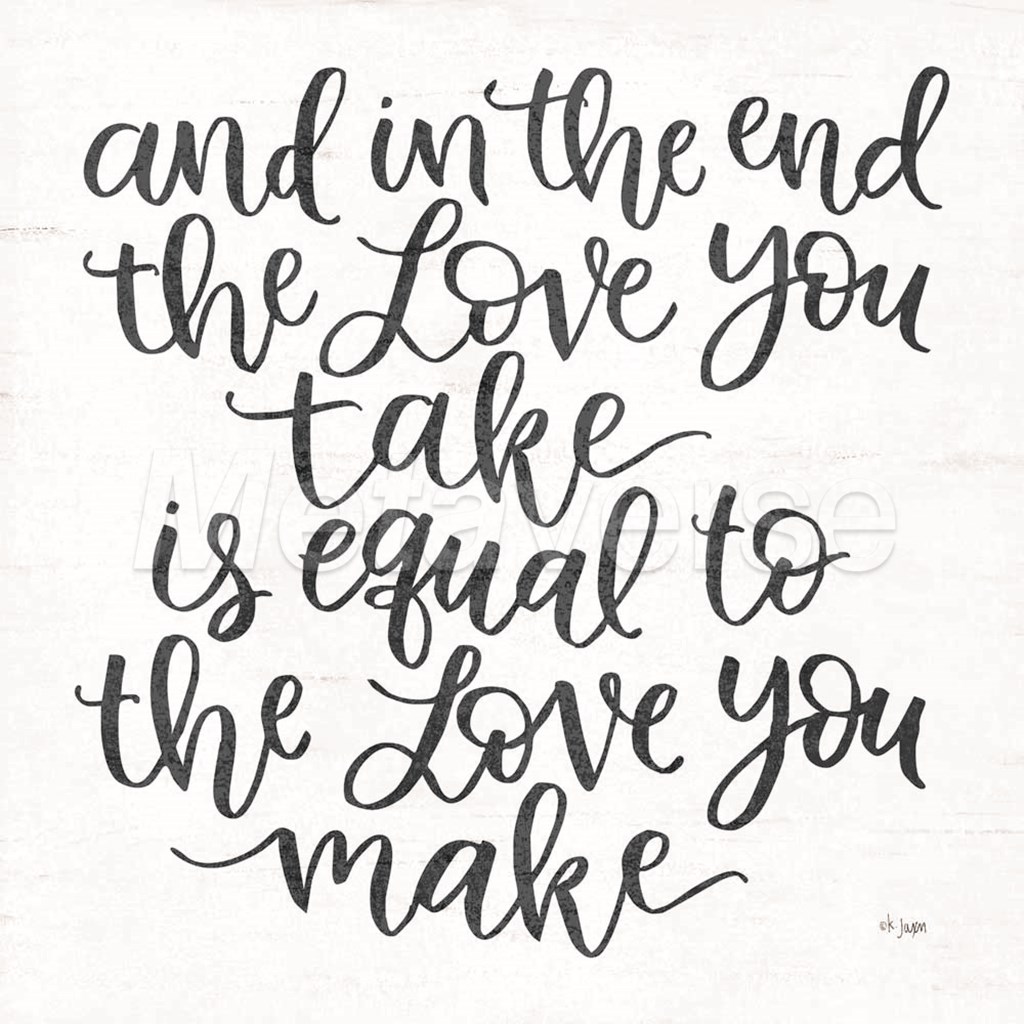 and in the end
the Love you
take
Metaverse
is equal to
the Love you
make
©K. Jaxn